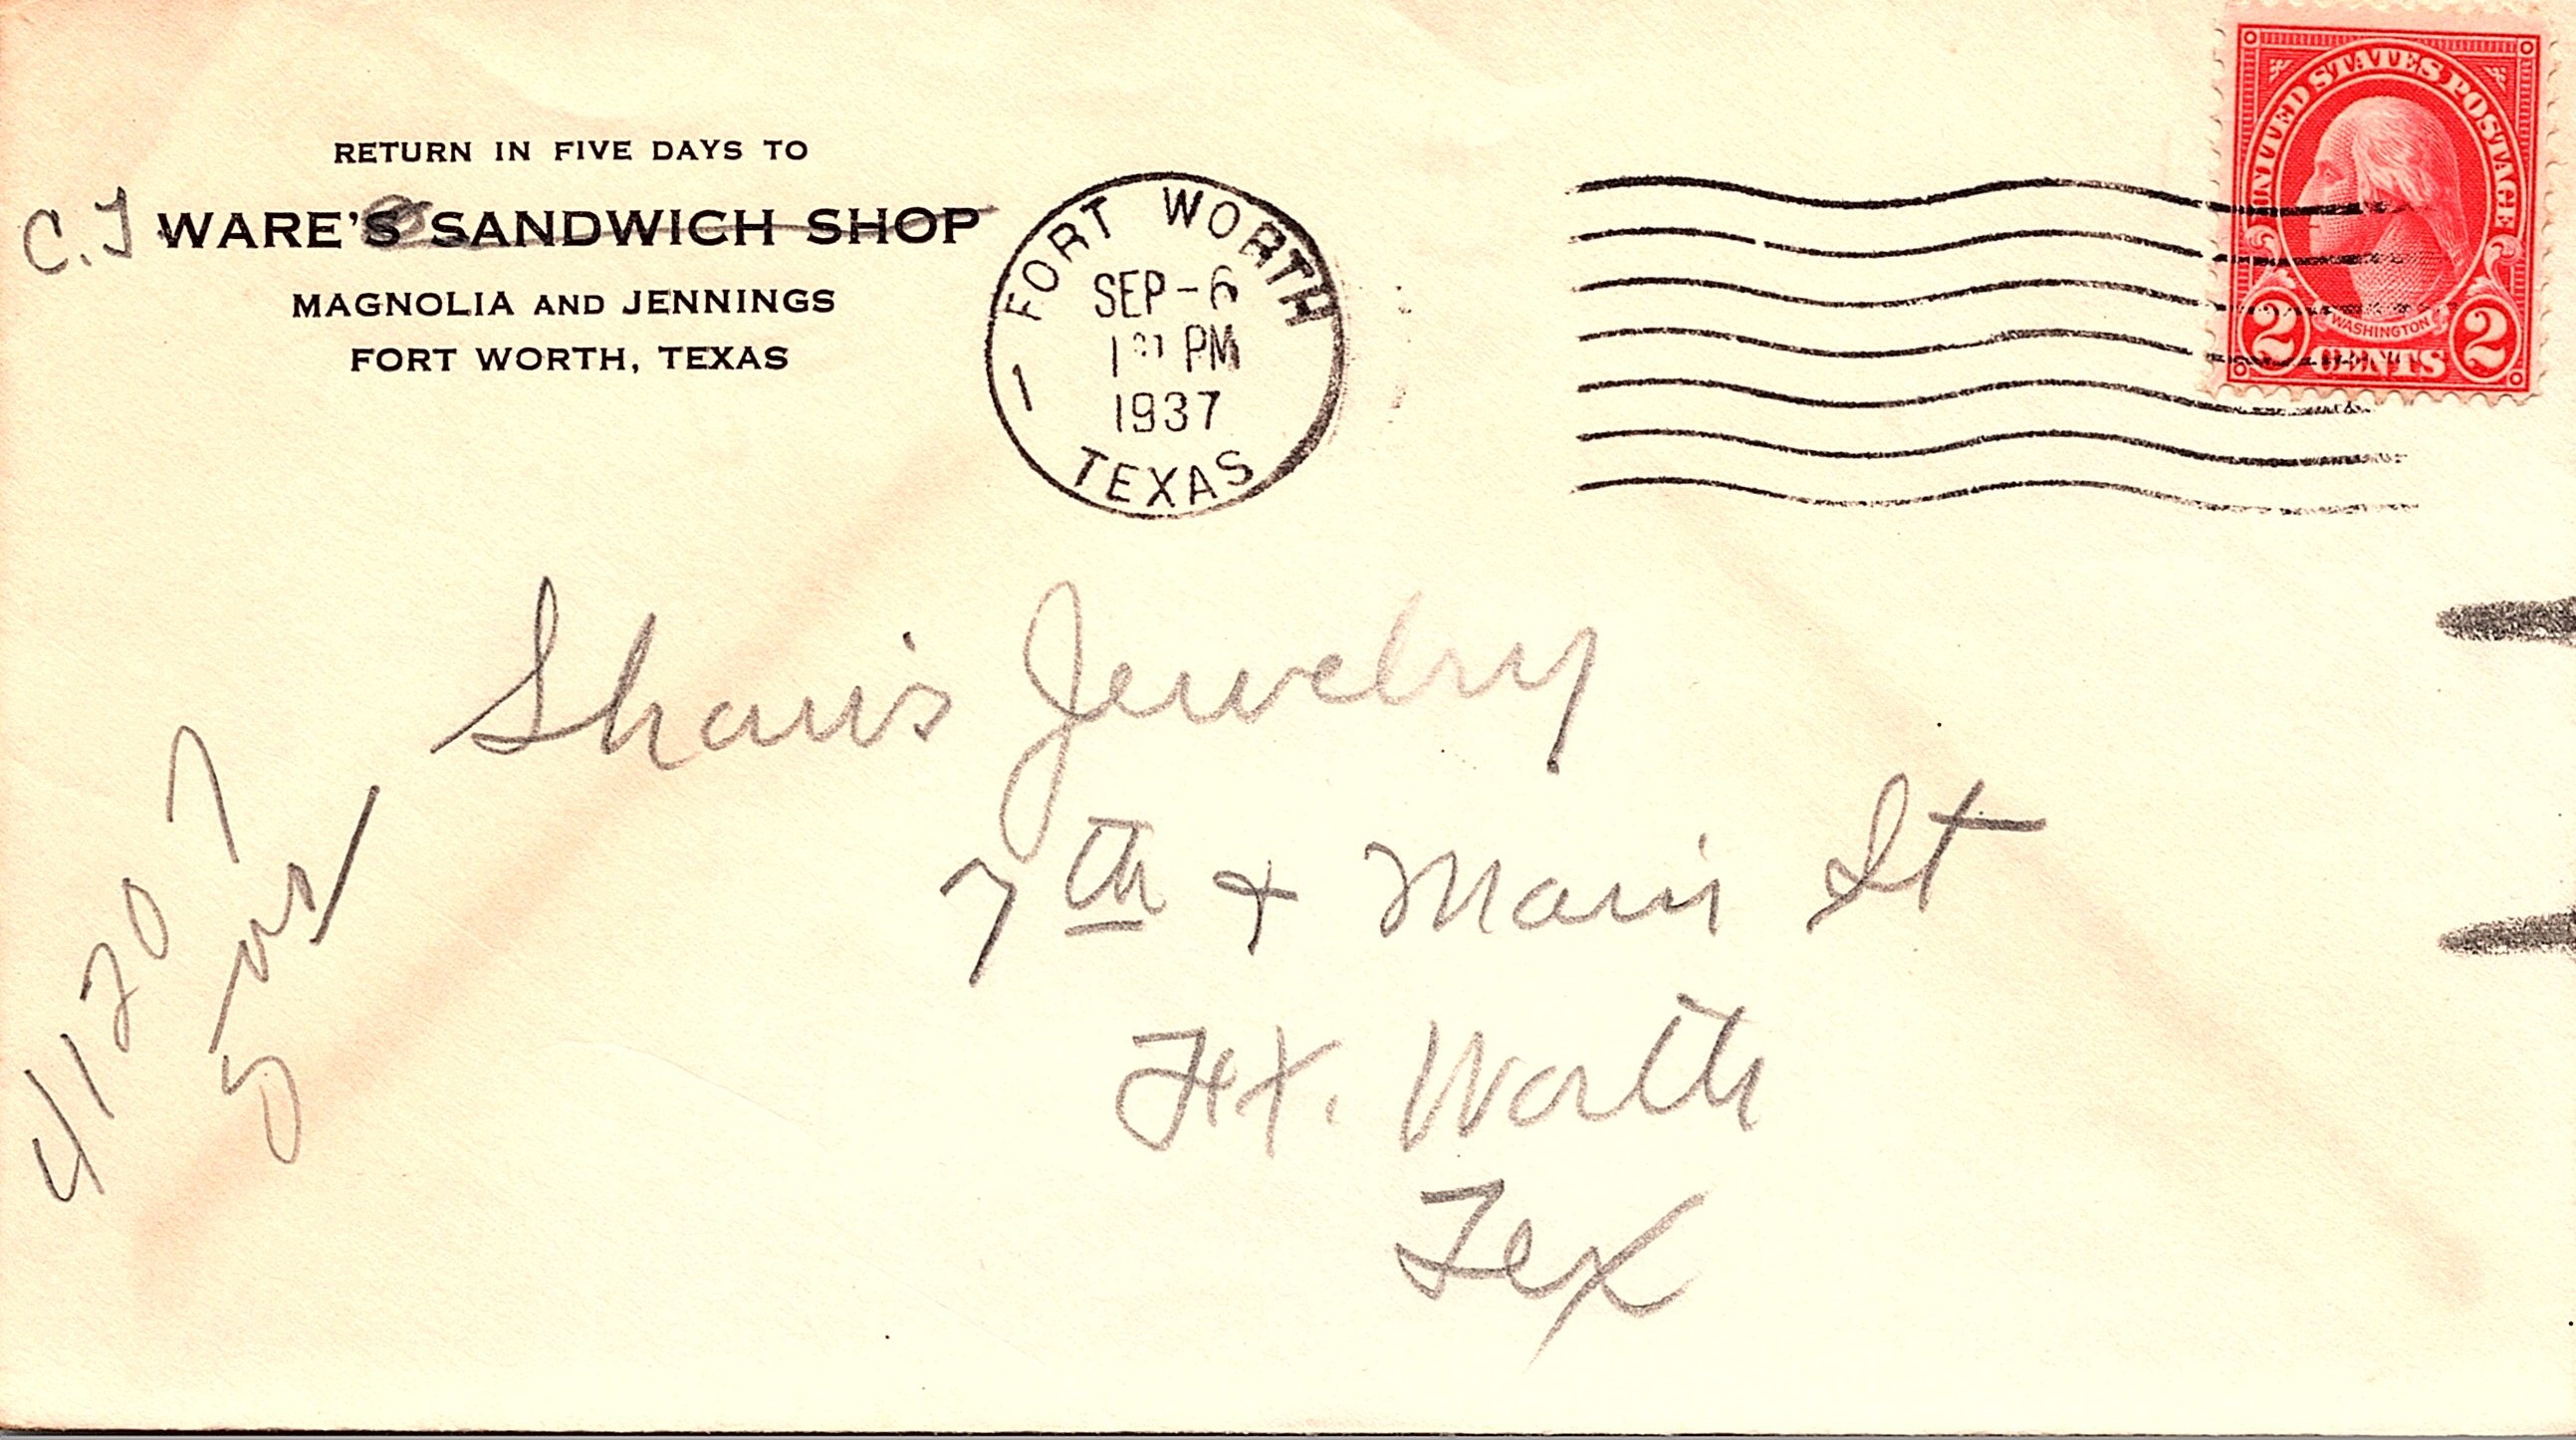 RETURN IN FIVE DAYS TO
C. J WARE'S SANDWICH SHOP
MAGNOLIA AND JENNINGS
FORT WORTH, TEXAS
FORT WORTH
SEP-6
PM
1937
1
TEXAS
UNITED STATES POSTAGE
WASHINGTON
2 CENTS 2
Shaw's Jewelry
7th + Main St
Ft. Worth
Tex
41207